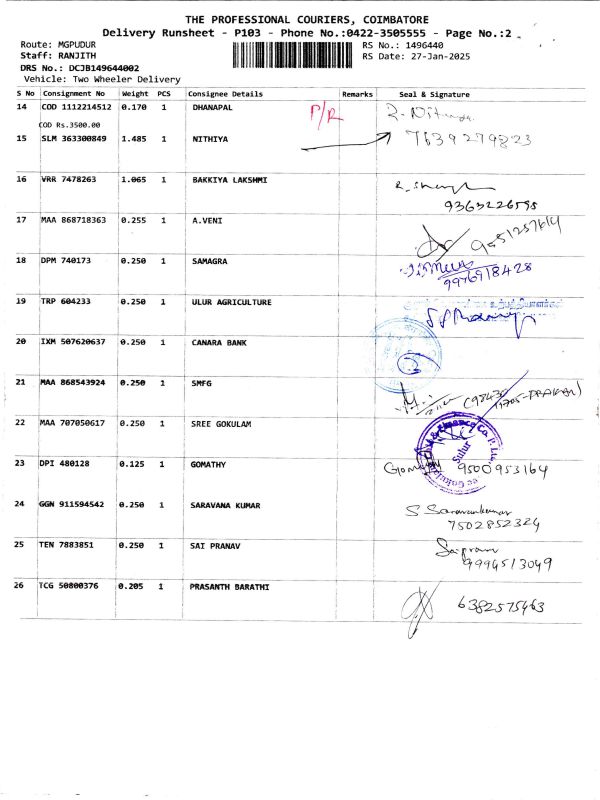 THE PROFESSIONAL COURIERS, COIMBATORE
Delivery Runsheet - P103 - Phone No.:0422-3505555 - Page No.:2
Route: MGPUDUR
Staff: RANJITH
DRS No.: DCJB149644002
Vehicle: Two Wheeler Delivery
RS No.: 1496440
RS Date: 27-Jan-2025
S No Consignment No Weight PCS Consignee Details Remarks Seal & Signature
14 COD 1112214512 0.170 1 DHANAPAL P/R
COD Rs.3500.00
15 SLM 363300849 1.485 1 NITHIYA 7639279823
16 VRR 7478263 1.065 1 BAKKIYA LAKSHMI
9363226598
17 MAA 868718363 0.255 1 A.VENI
18 DPM 740173 0.250 1 SAMAGRA
9976918428
19 TRP 604233 0.250 1 ULUR AGRICULTURE
20 IXM 507620637 0.250 1 CANARA BANK
21 MAA 868543924 0.250 1 SMFG
22 MAA 707050617 0.250 1 SREE GOKULAM
Sulur
23 DPI 480128 0.125 1 GOMATHY 9500953164
24 GGN 911594542 0.250 1 SARAVANA KUMAR S Saravankumar
7502852324
25 TEN 7883851 0.250 1 SAI PRANAV
9994513049
26 TCG 50800376 0.205 1 PRASANTH BARATHI 6382575463